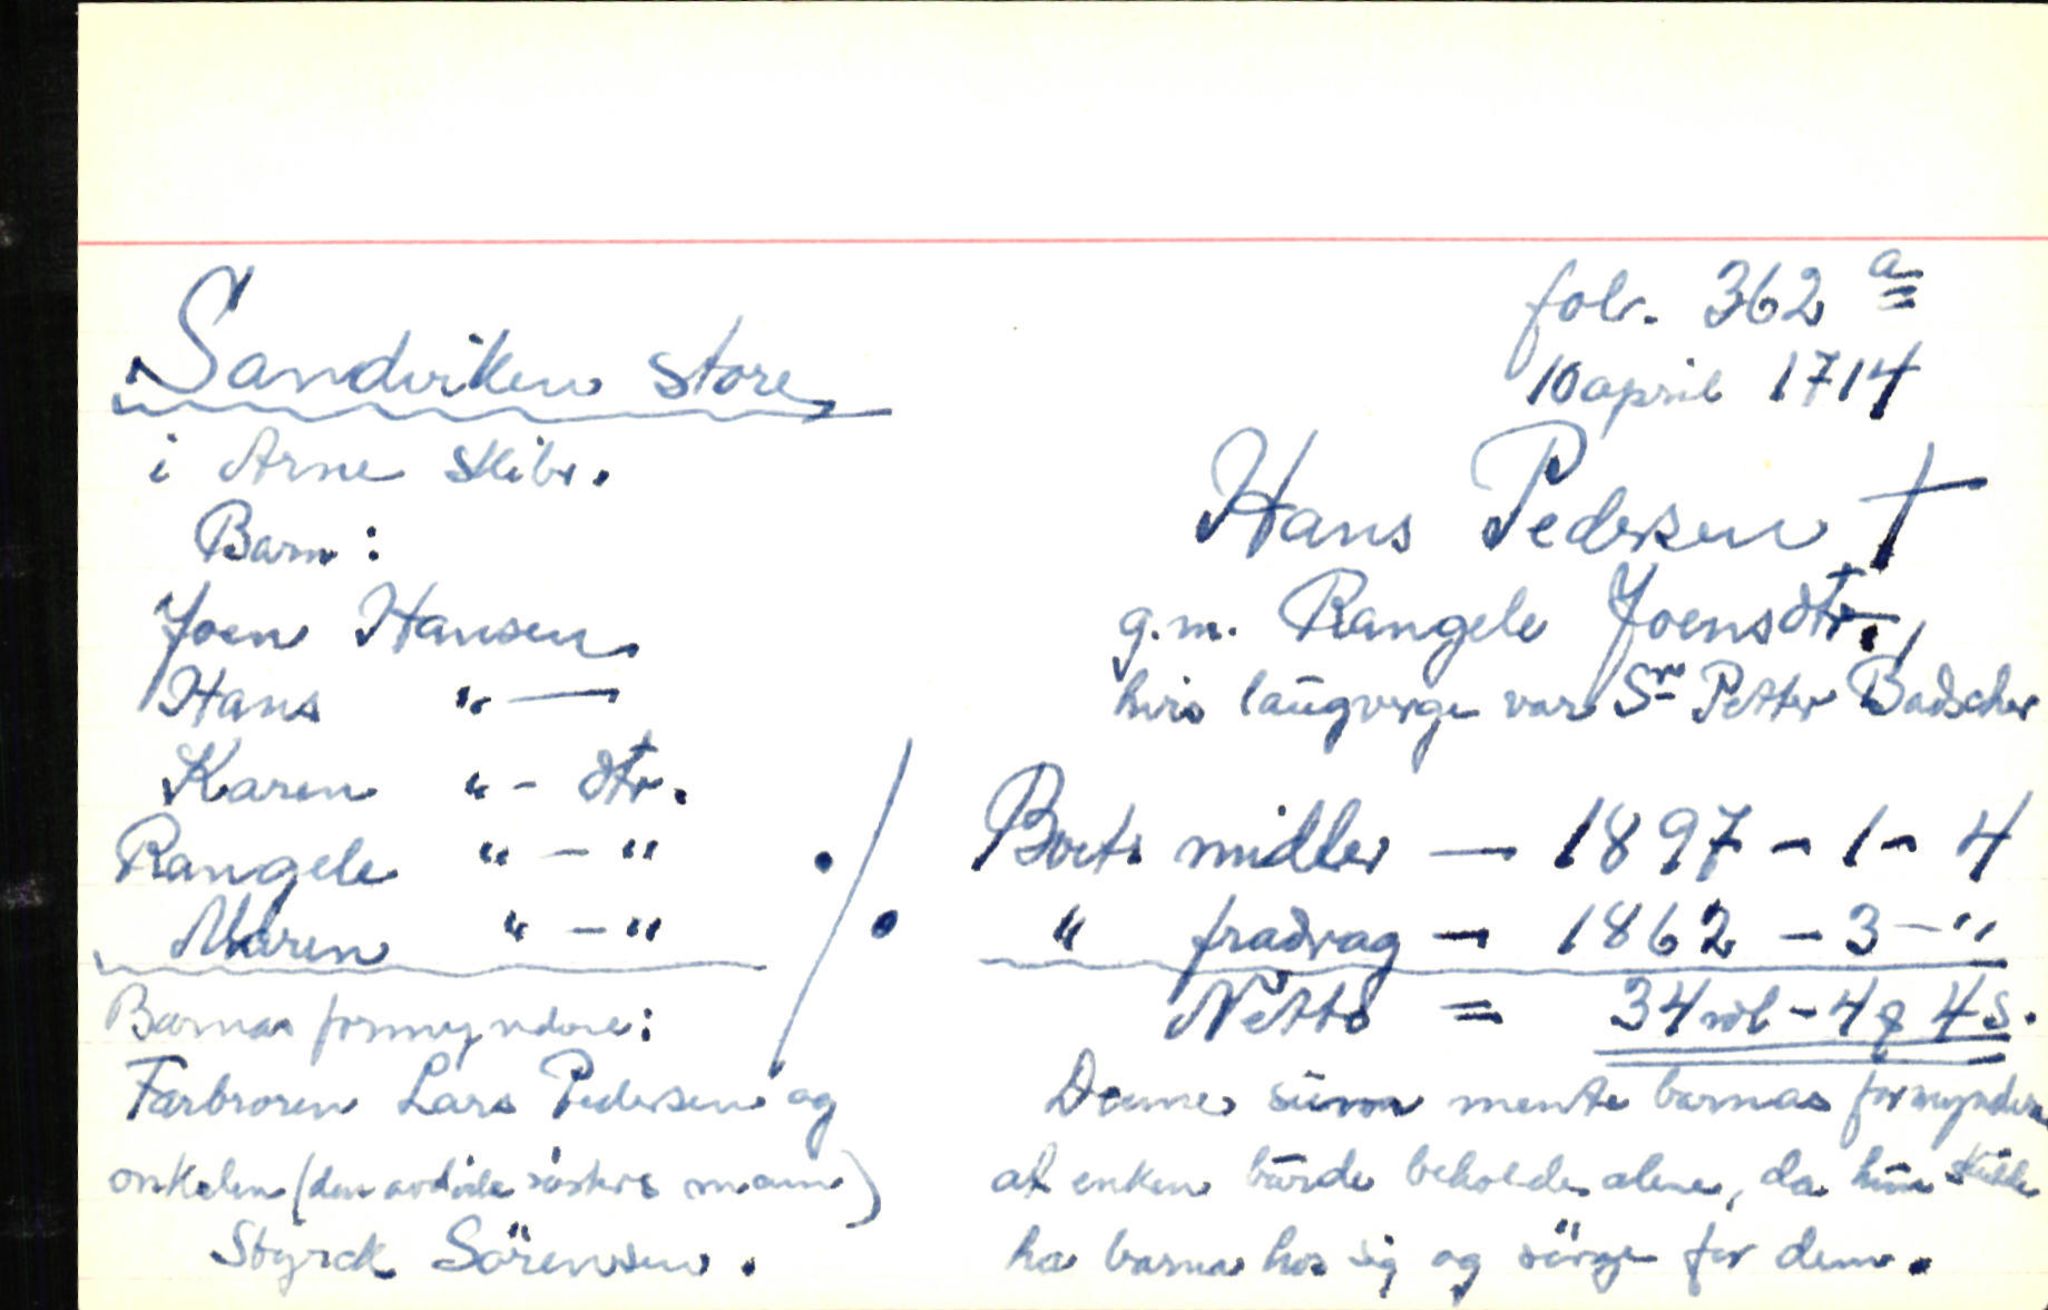 fol. 362 a
10 april 1714
Sandviken store
i Arne skibr.
Barn:
Joen Hansen
Hans " —
Karen " - dtr.
Rangele " - "
Maren " - "
Barnas formyndere:
Farbroren Lars Pedersen og
onkelen (den avdöde sösters mann)
Styrck Sörensen.
Hans Pedersen †
g.m. Rangele Joensdtr.,
hvis laugverge var Sr Petter Badscher
Boets midler — 1897 - 1 - 4
" fradrag — 1862 - 3 - "
Netto = 34 rdl - 4 q 4 s.
Denne sum mente barnas formyndere
at enken burde beholde alene, da hun skulle
ha barna hos sig og sörge for dem.